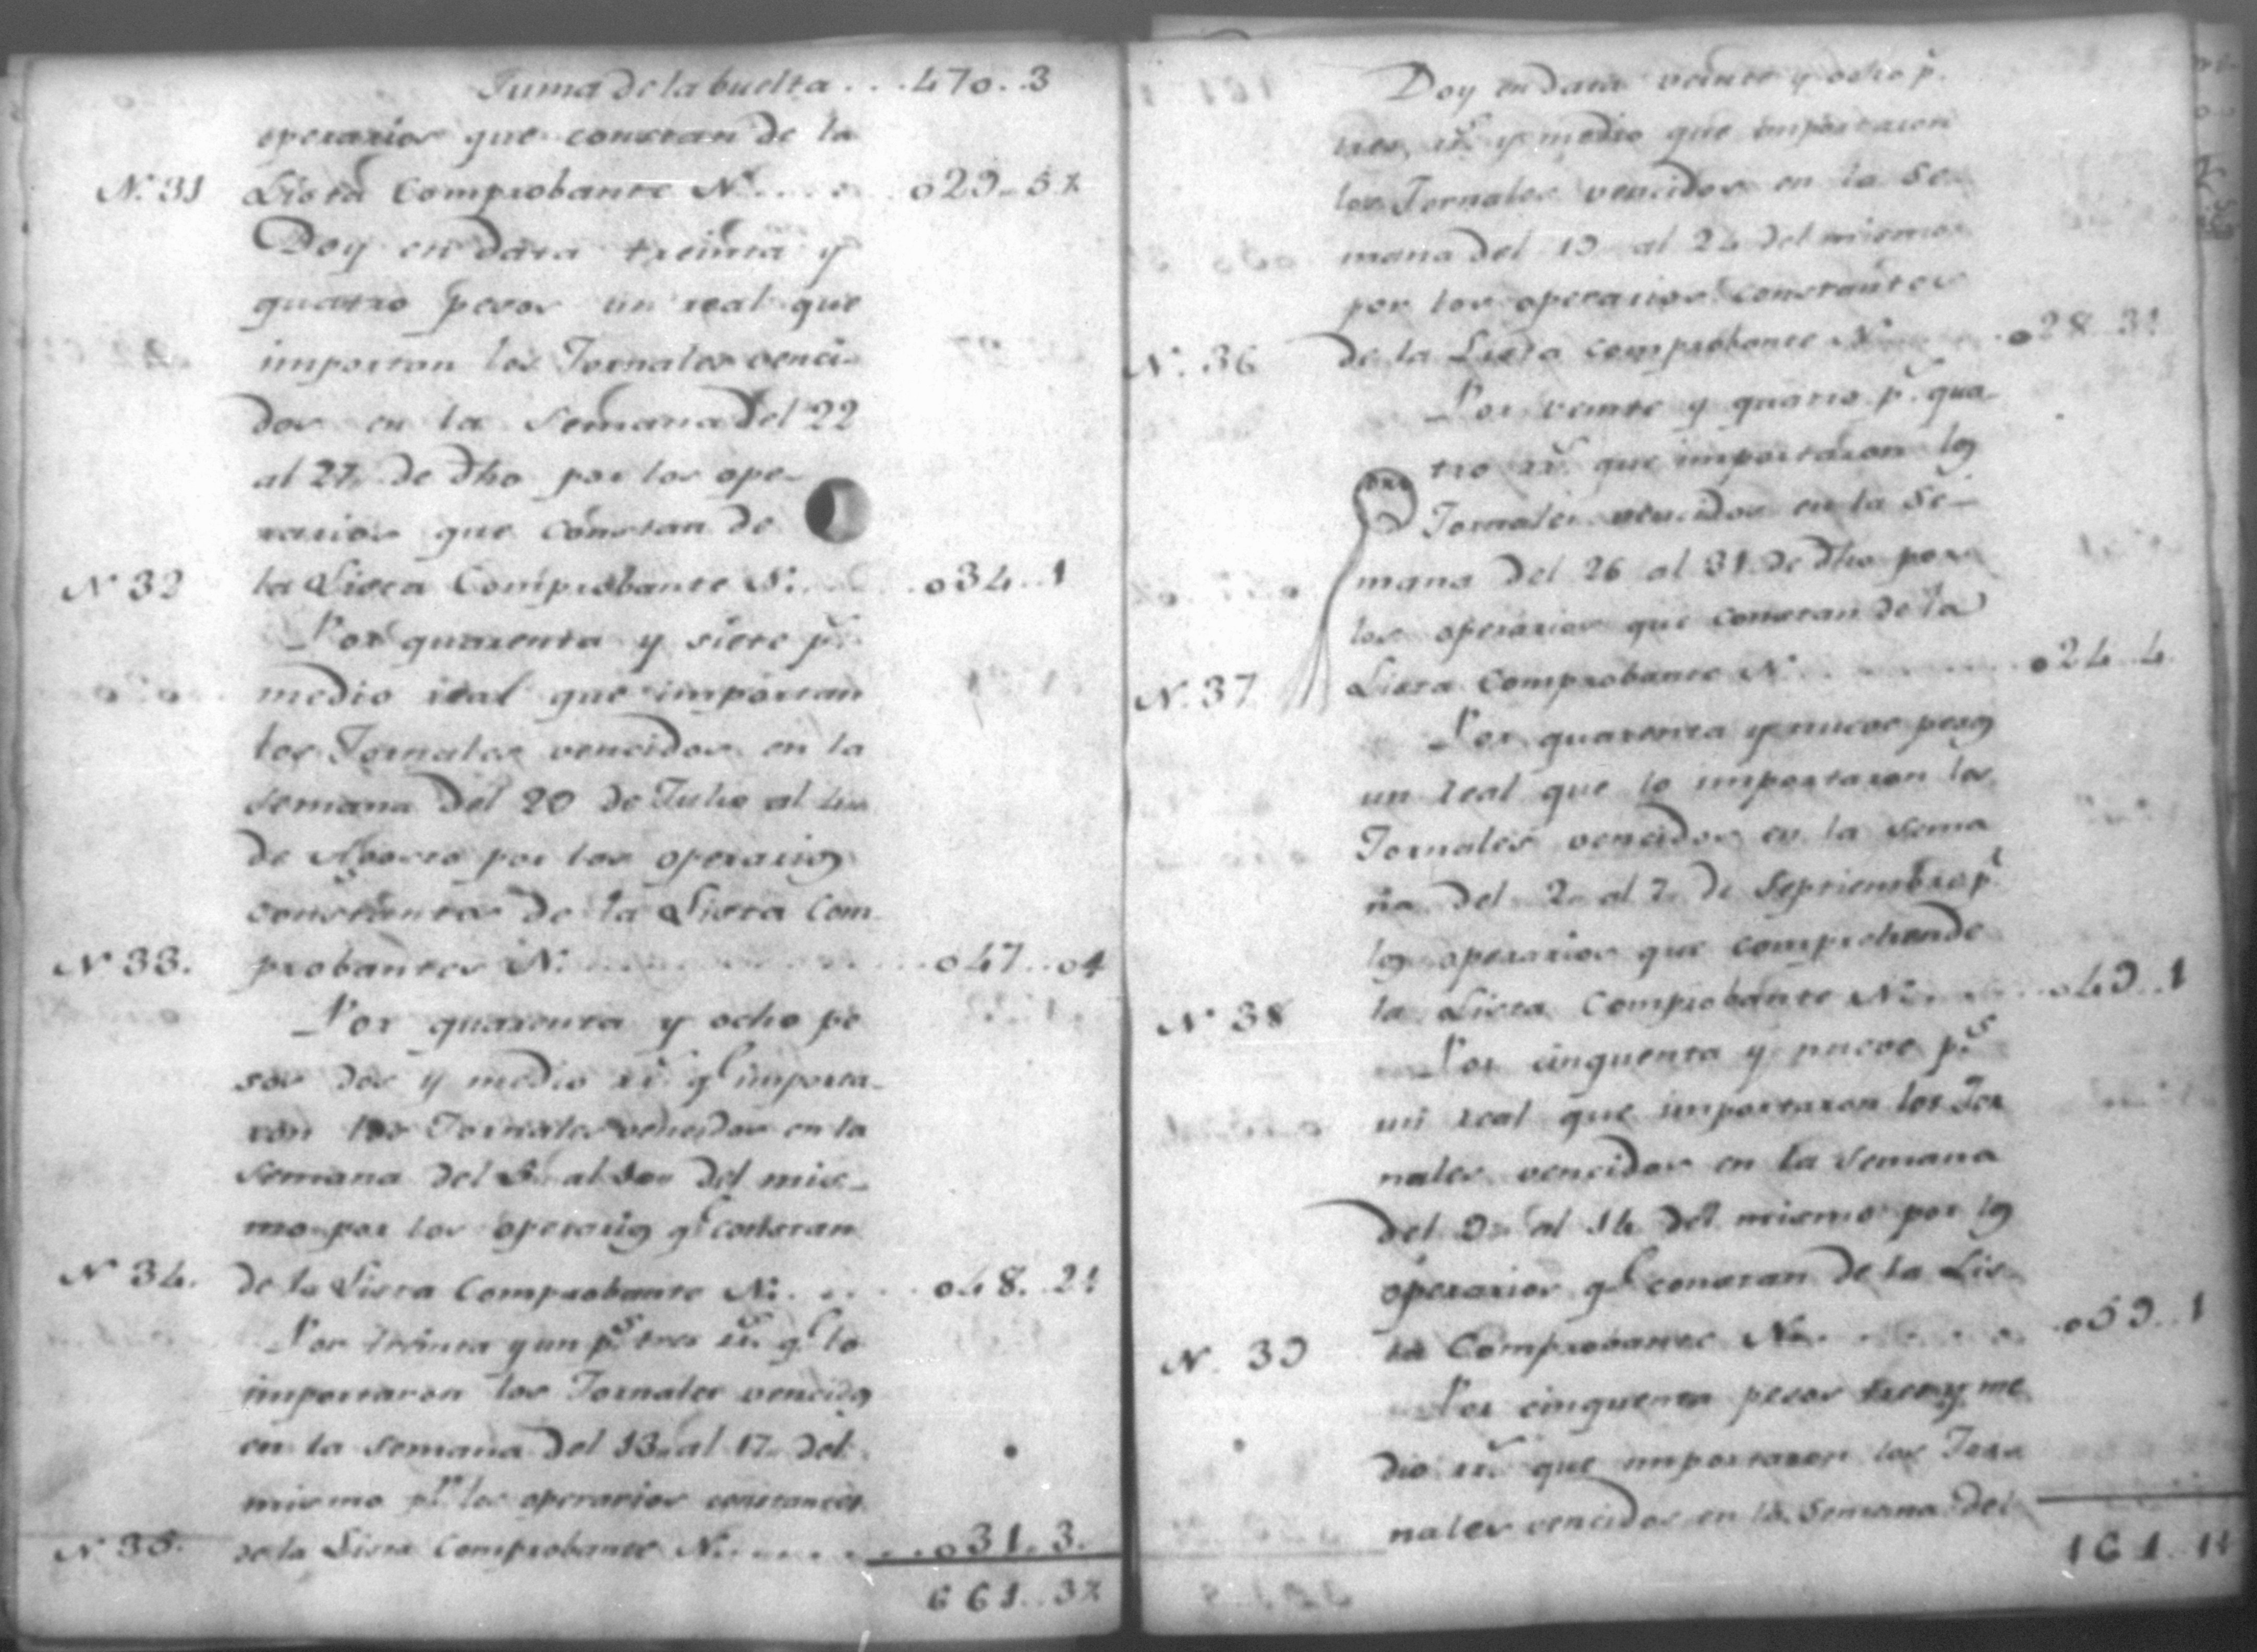 Suma de la buelta . . . 470..3
operarios que constan de la
N. 31 Lista Comprobante N. . . . . 029..5½
Doy en data treinta y
quatro pesos un real que
importan los Jornales venci-
dos en la semana del 22
al 27 de dho por los ope-
rarios que constan de
N 32 la Lista Comprobante N. . . . 034..1
Por quarenta y siete p.s
medio real que importan
los Jornales vencidos en la
semana del 29 de Julio al
de Agosto por los operarios
constantes de la Lista Com
N 33. probantes N. . . . . 047..0½
Por quarenta y ocho pe
sos dos y medio rr.s q.e importa-
ron los Jornales vencidos en la
semana del 5 al 10 del mis-
mo por los operarios q.e constan
N 34. de la Lista Comprobante N. . . . 048..2½
Por treinta y un p.s tres rr.s q.e lo
importaron los Jornales vencidos
en la semana del 13 al 17 del
mismo p.r los operarios constantes
N 35. de la Lista Comprobante N. . . . 031..3.
661..3½
Doy en data veinte y ocho p.s
tres rr.s y medio que importaron
los Jornales vencidos en la Se-
mana del 19 al 24 del mismo
por los operarios constantes
N. 36 de la Lista comprobante N. . . . 028..3½
Por veinte y quatro p.s qua-
tro rr.s que importaron los
Jornales vencidos en la Se-
mana del 26 al 31 de dho por
los operarios que constan de la
N. 37 Lista Comprobante N. . . . 024..4.
Por quarenta y nueve pesos
un real que lo importaron los
Jornales vencidos en la sema
na del 2 al 7 de Septiembre p.r
los operarios que comprehende
N 38 la Lista Comprobante N. . . . 049..1
Por cinquenta y nueve p.s
un real que importaron los Jor
nales vencidos en la semana
del 9 al 14 del mismo por los
operarios q.e constan de la Lis-
N. 39 ta Comprobante N. . . . 059..1
Por cinquenta pesos tres y me
dio rr.s que importaron los Jor
nales vencidos en la Semana del
161..1½